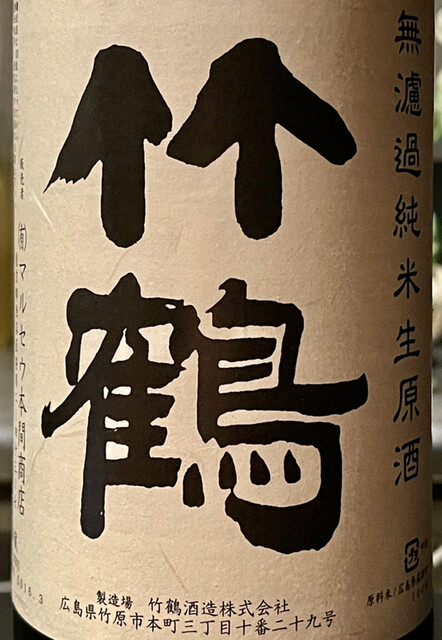 無濾過純米生原酒
竹鶴
販売者
㈲マルセウ本間商店
製造場 竹鶴酒造株式会社
広島県竹原市本町三丁目十番二十九号
原料米/広島県産